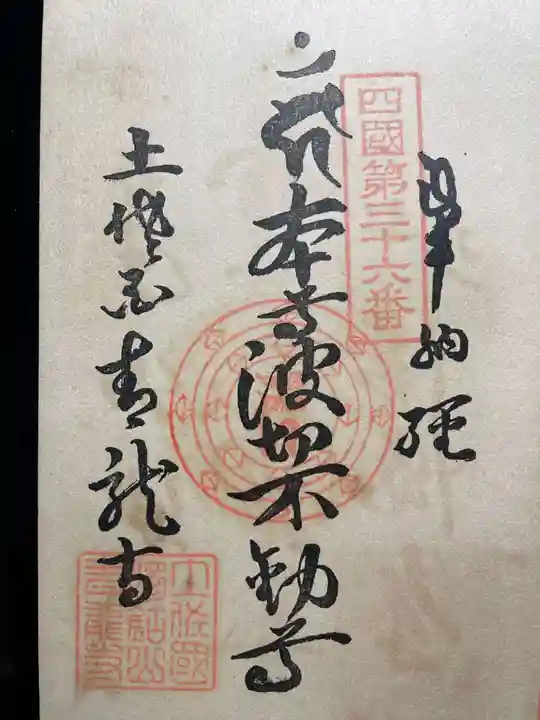 奉納経
四國第三十六番
本尊波切不動尊
土佐国青龍寺
土佐國
獨鈷山
青龍寺